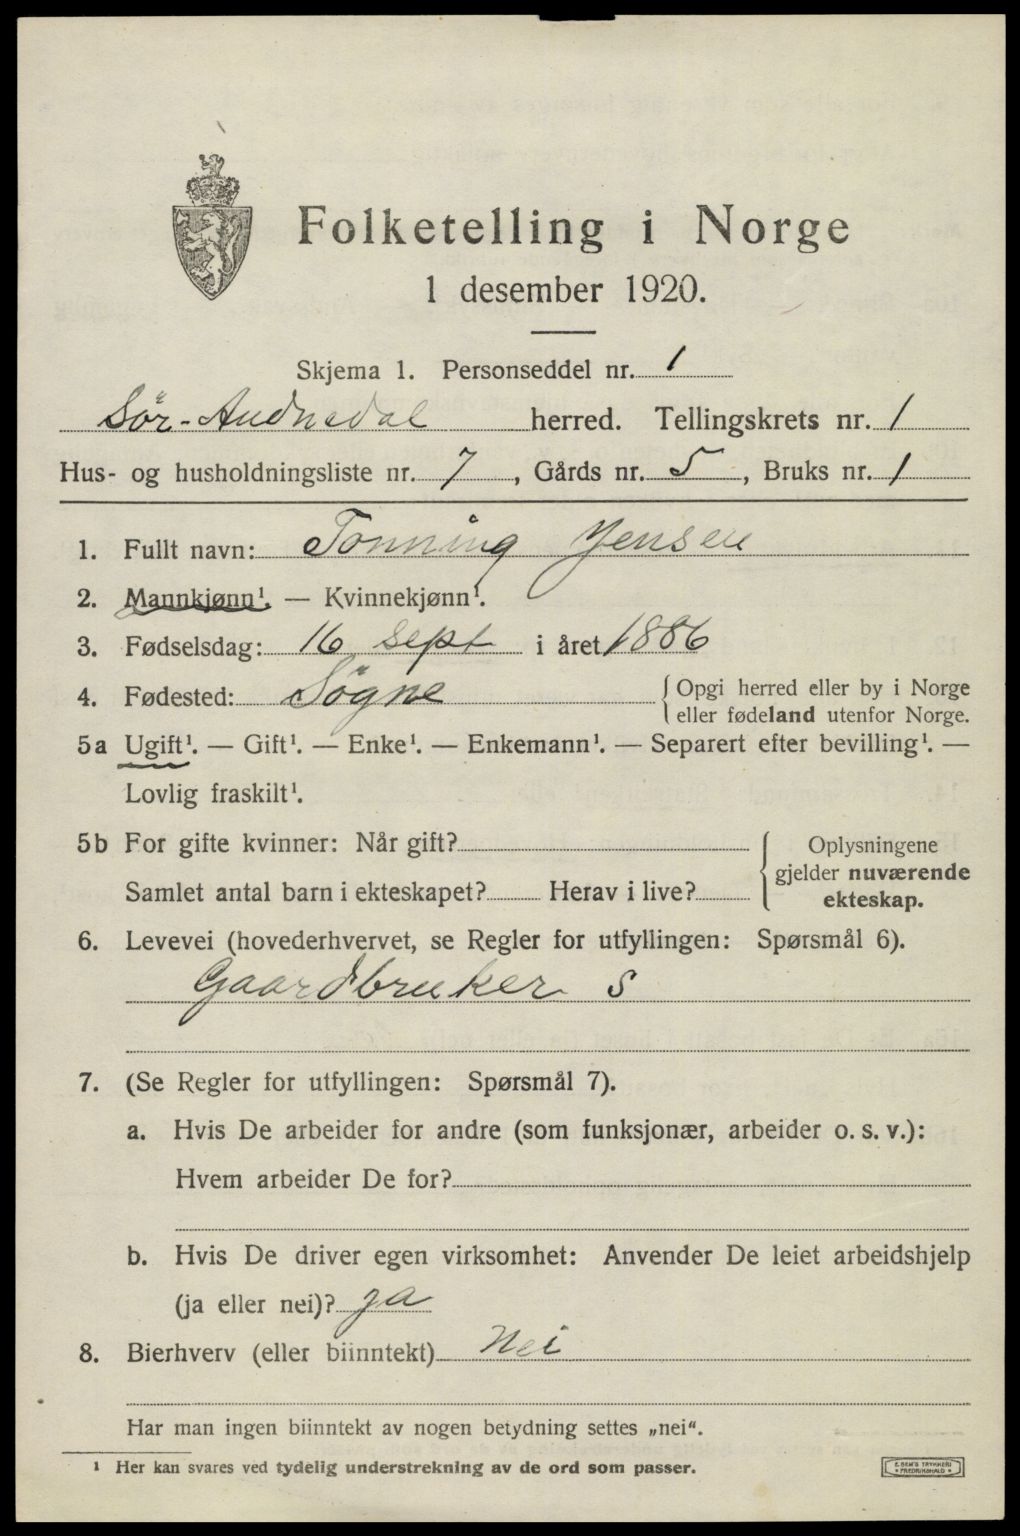 Folketelling i Norge
1 desember 1920.
Skjema 1. Personseddel nr. 1
Sör-Audnedal herred. Tellingskrets nr. 1
Hus- og husholdningsliste nr. 7, Gårds nr. 5, Bruks nr. 1
1. Fullt navn: Tønning Jensen
2. Mannkjønn¹. — Kvinnekjønn¹.
3. Fødselsdag: 16 sept i året 1886
4. Fødested: Sögne { Opgi herred eller by i Norge
eller fødeland utenfor Norge.
5a Ugift¹. — Gift¹. — Enke¹. — Enkemann¹. — Separert efter bevilling¹. —
Lovlig fraskilt¹.
5b For gifte kvinner: Når gift? { Oplysningene
gjelder nuværende
Samlet antal barn i ekteskapet? Herav i live?
ekteskap.
6. Levevei (hovederhvervet, se Regler for utfyllingen: Spørsmål 6).
Gaardbruker S
7. (Se Regler for utfyllingen: Spørsmål 7).
a. Hvis De arbeider for andre (som funksjonær, arbeider o. s. v.):
Hvem arbeider De for?
b. Hvis De driver egen virksomhet: Anvender De leiet arbeidshjelp
(ja eller nei)? ja
8. Bierhverv (eller biinntekt) Nei
Har man ingen biinntekt av nogen betydning settes „nei“.
¹ Her kan svares ved tydelig understrekning av de ord som passer.
E. SEM'S TRYKKERI
• FREDRIKSHALD •